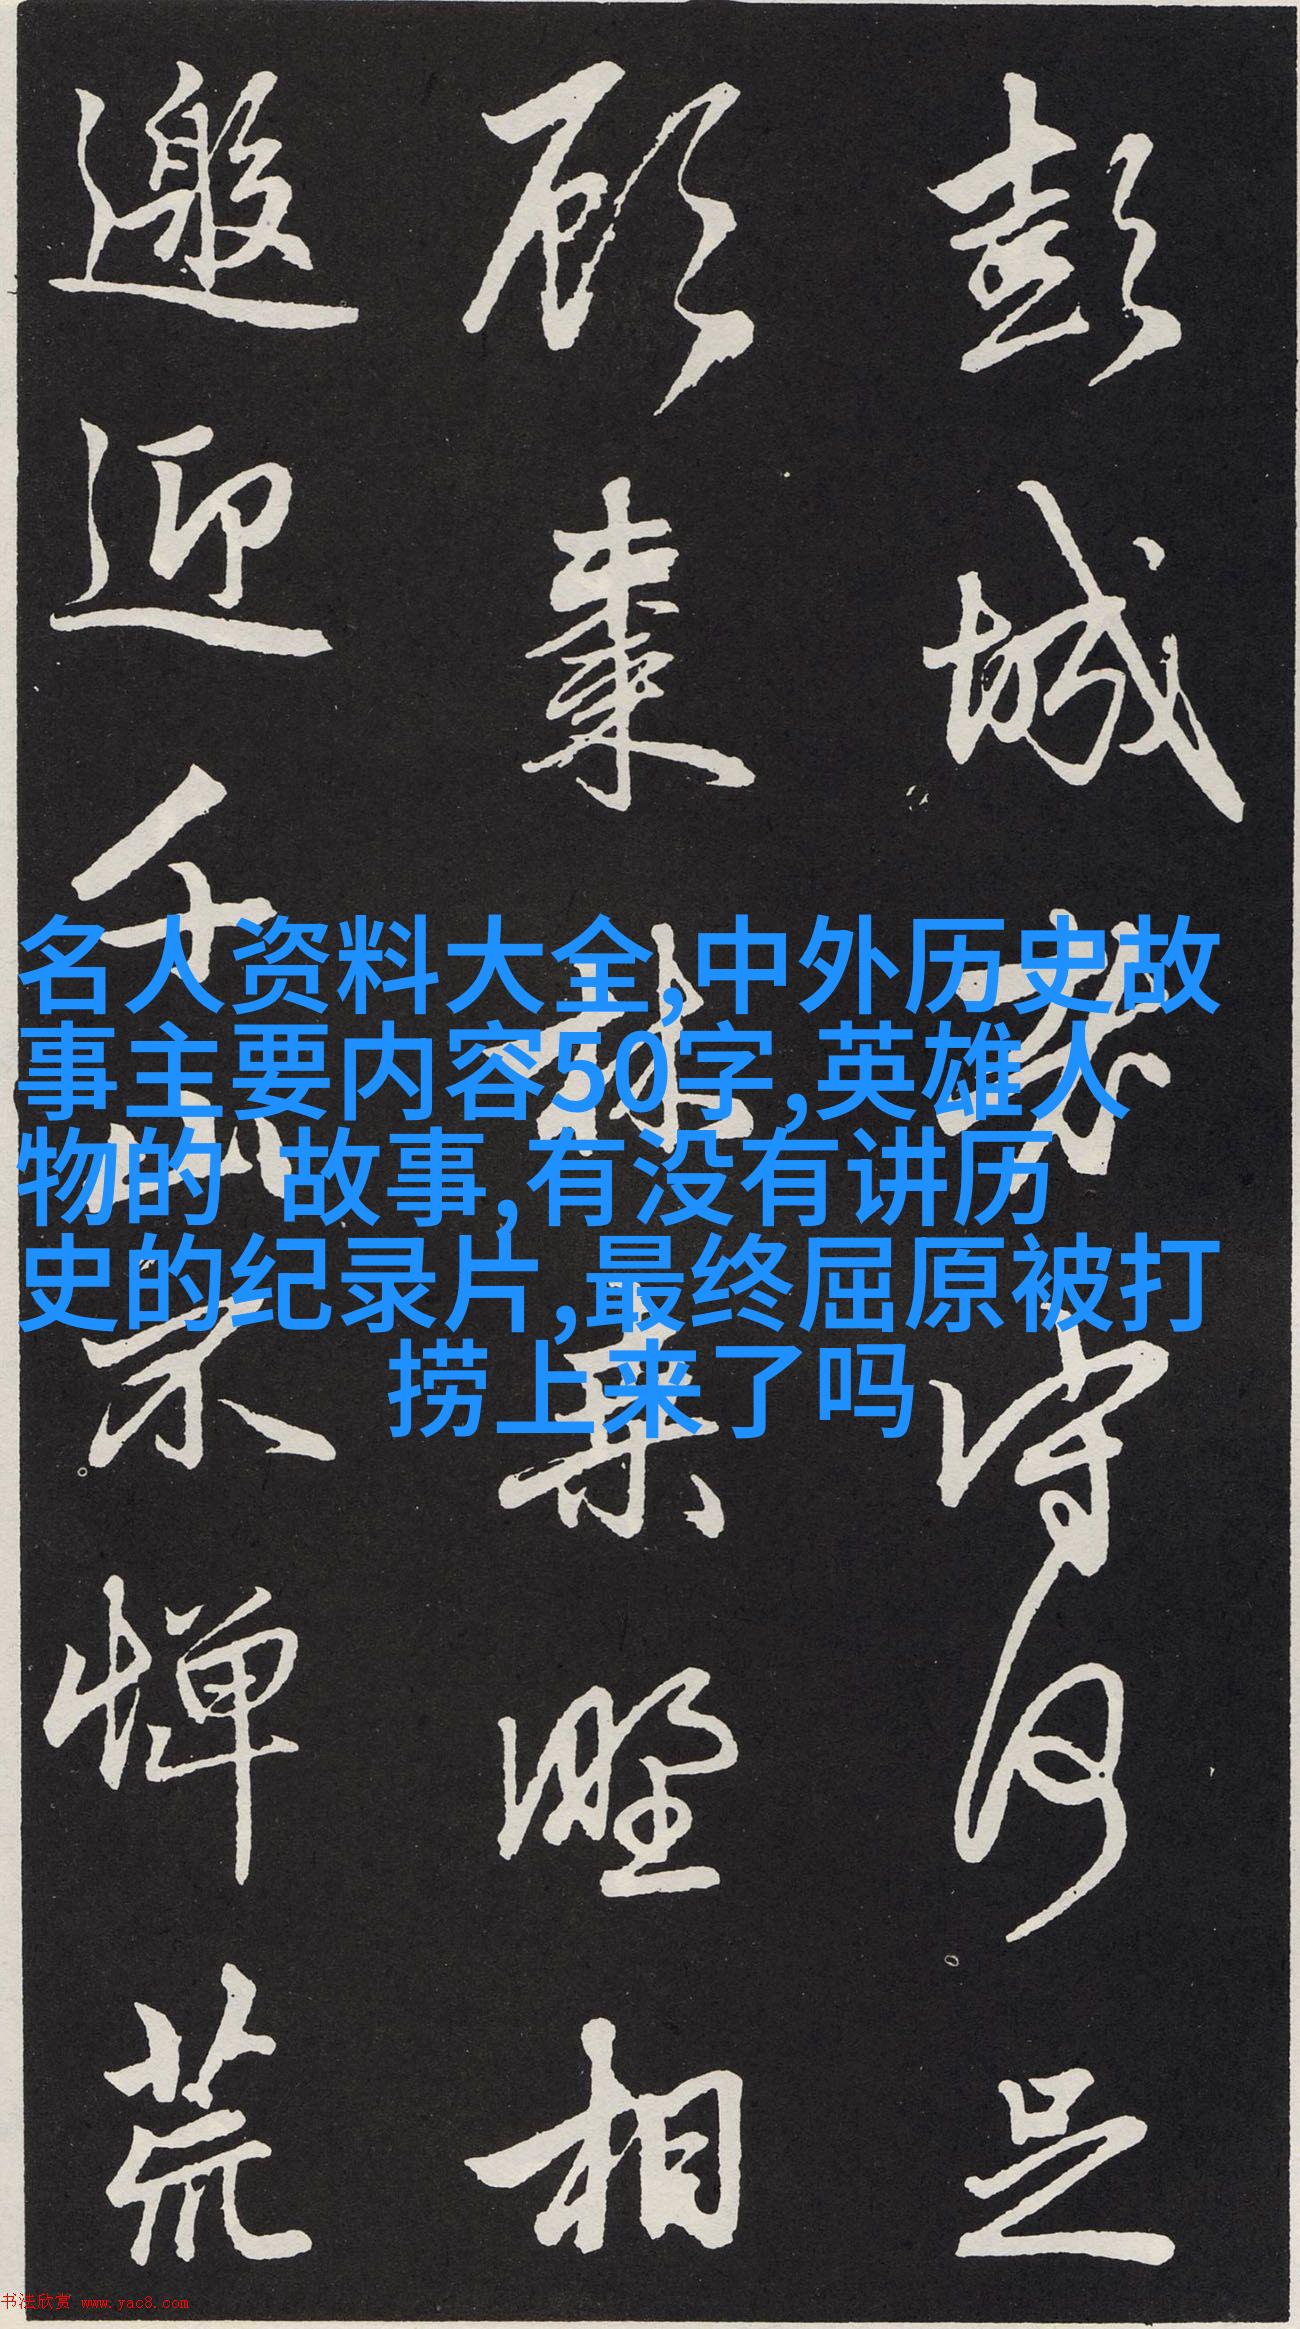 彭城老守何足
顧棗林桑野相
邀迎千山不憚荒
名人资料大全,中外历史故
事主要内容50字,英雄人
物的 故事,有没有讲历
史的纪录片,最终屈原被打
捞上来了吗
书法欣赏 www.yac8.com